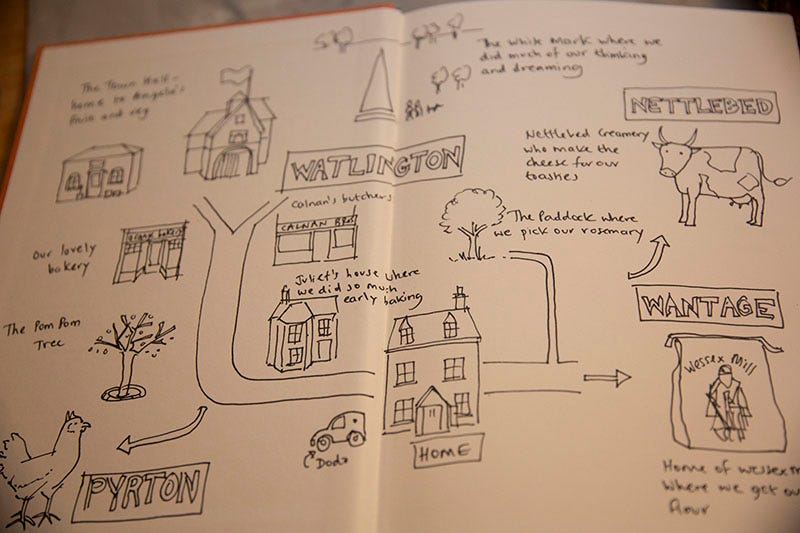 The Town Hall -
home to Angela's
fruit and veg
The White Mark where we
did much of our thinking
and dreaming
NETTLEBED
Nettlebed Creamery
who make the
cheese for our
toashes
WATLINGTON
Calnan's butchers
CALNAN BROS
Our lovely
bakery
The Paddock where
we pick our rosemary
Juliet's house where
we did so much
early baking
The Pom Pom
Tree
WANTAGE
Wessex Mill
Home of Wessex
where we get ou
flour
HOME
PYRTON